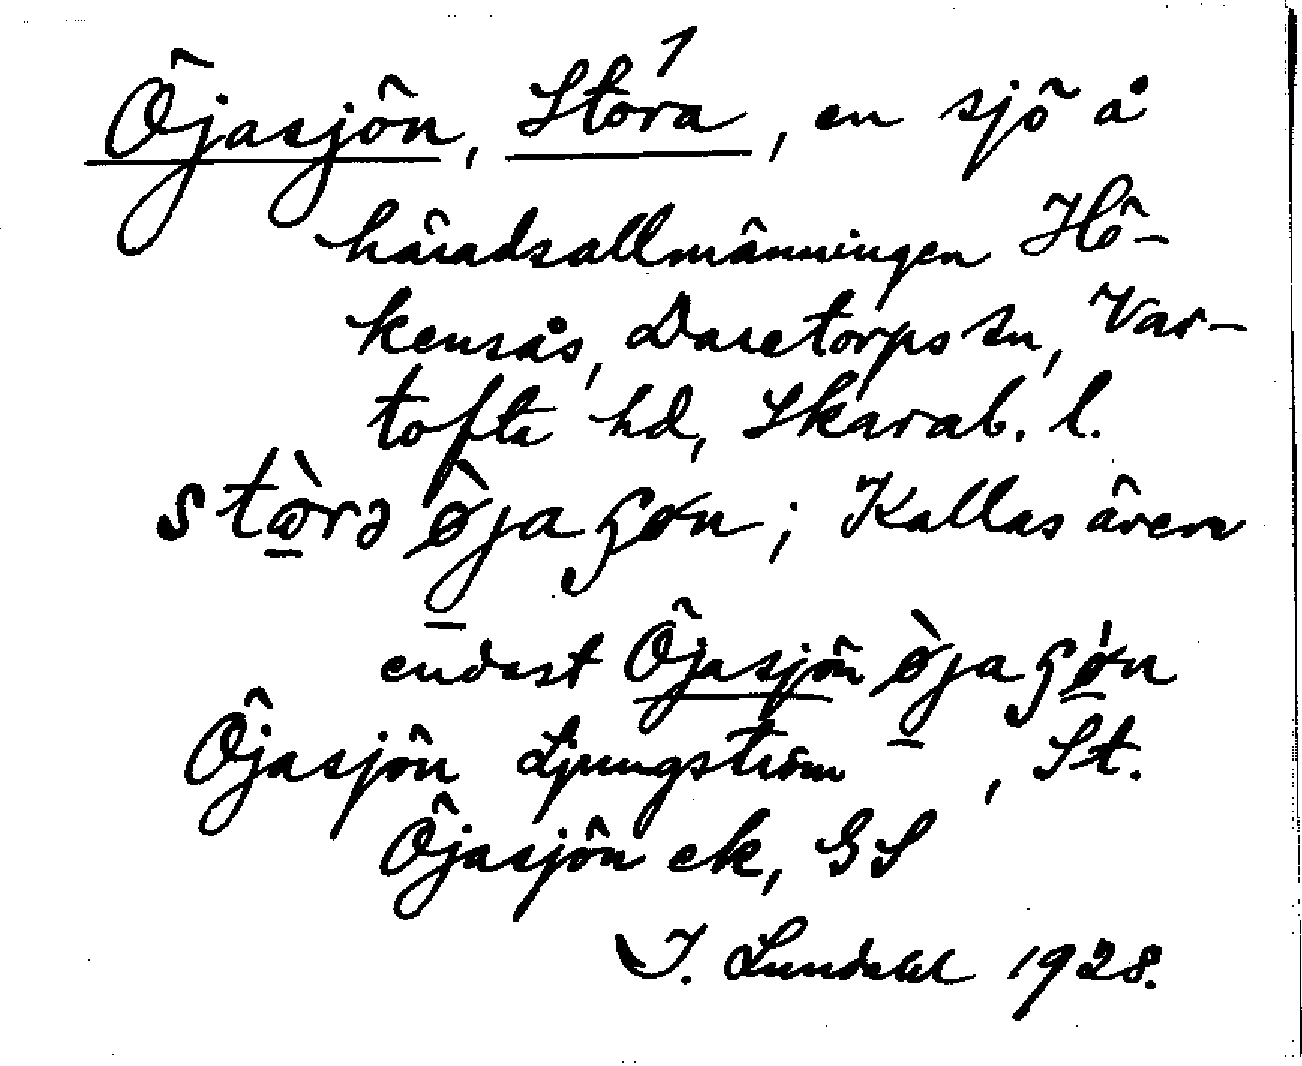 Öjasjön, Stora 1, en sjö å
häradsallmänningen Hö-
kensås, Daretorps sn, Var-
tofta hd, Skarab. l.
stɷ̀rə ø̀jaʂøn; Kallas även
endast Öjasjön ø̀jaʂǿn
Öjasjön Ljungström, St.
Öjasjön ek, GS
I. Lundahl 1928.